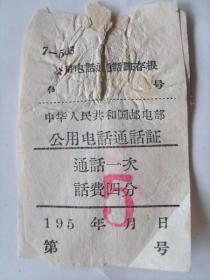 公用电话通话證存根
第 号
中华人民共和国邮电部
公用电话通话証
通話一次
話費四分
5
195 年 月 日
第 号